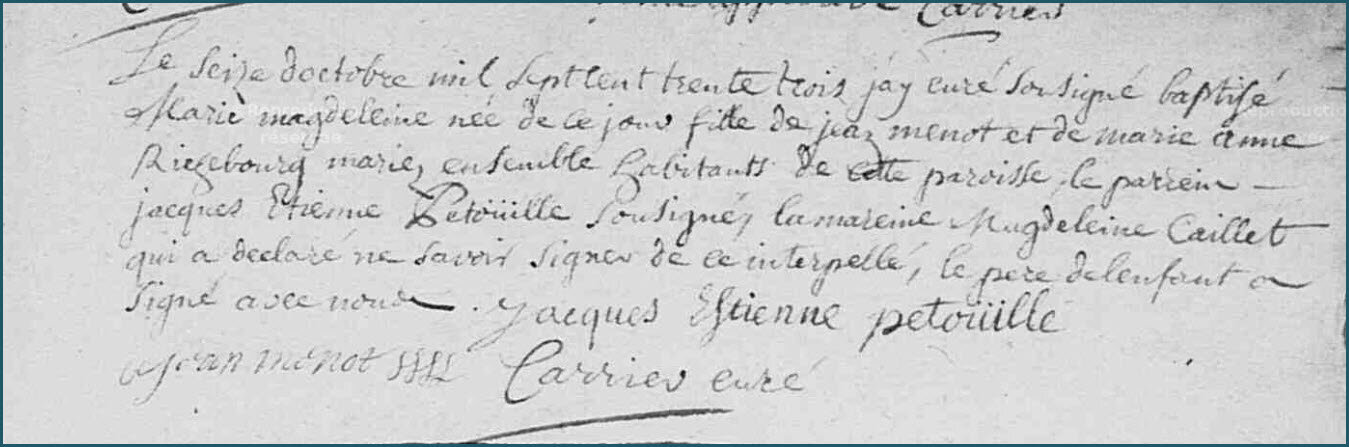 Carrier
Le seize doctobre mil sept cent trente trois jay curé sousigné baptisé
Marie magdeleine née de ce jour fille de jean menot et de marie anne
Riezebourg mariez ensemble habitants de cette paroisse, le parrein
jacques Etienne Petoüille sousigné, la mareine Magdeleine Caillet
qui a declaré ne savoir signer de ce interpellé, le pere de lenfant a
signé avec nous. Jacques Estienne petoüille
jean menot Carrier curé